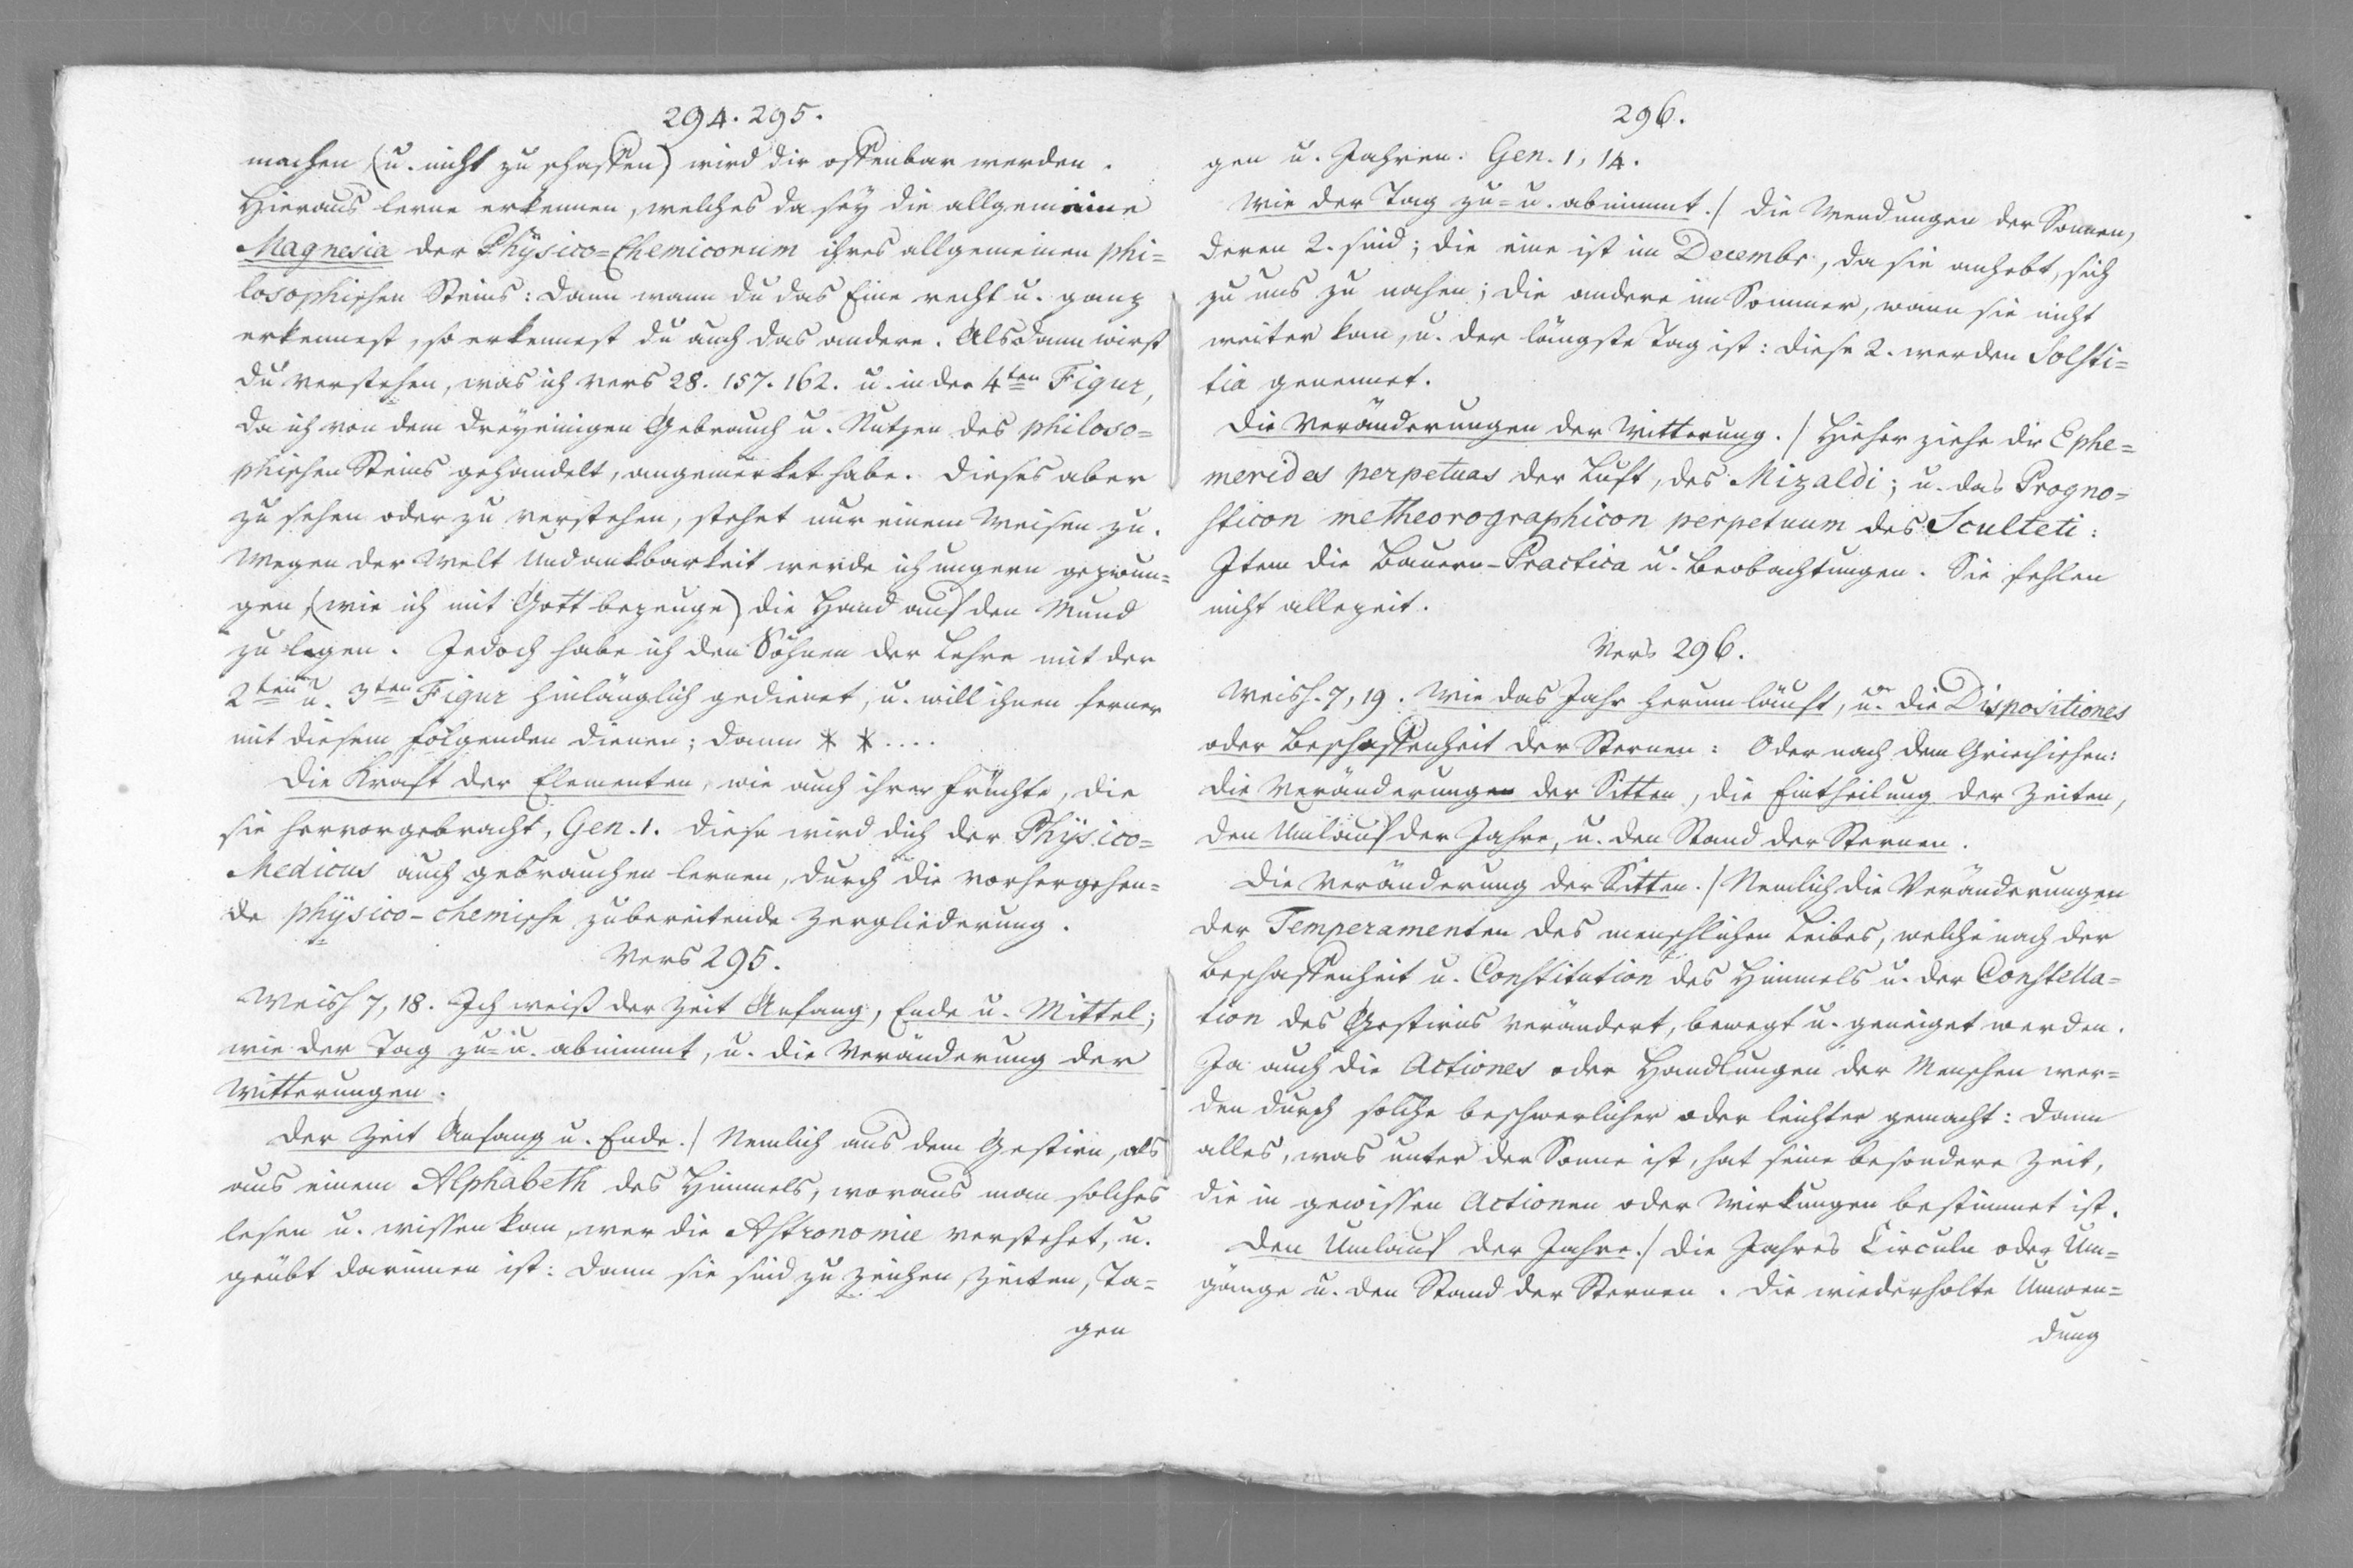 294. 295.
machen (u. nicht zu schaffen) wird dir offenbar werden.
Hieraus lerne erkennen, welches da sey die allgemeine
Magnesia der Physico=Chemicorum ihres allgemeinen phi=
losophischen Steins: dann wann du das Eine recht u. ganz
erkennest, so erkennest du auch das andere. Alsdann wirst
du verstehen, was ich vers 28. 157. 162. u. in der 4ten Figur,
da ich von dem dreyeinigen Gebrauch u. Nutzen des philoso=
phischen Steins gehandelt, angemerket habe. Dieses aber
zu sehen oder zu verstehen, stehet nur einem Weisen zu.
Wegen der Welt Undankbarkeit werde ich ungern gezwun=
gen, (wie ich mit Gott bezeuge) die Hand auf den Mund
zu legen. Jedoch habe ich den Söhnen der Lehre mit der
2ten u. 3ten Figur hinlänglich gedienet, u. will ihnen ferner
mit diesem folgenden dienen; dann * * ....
Die Kraft der Elementen, wie auch ihrer Früchte, die
sie hervorgebracht, Gen. 1. diese wird dich der Physico=
Medicus auch gebrauchen lernen, durch die vorhergehen=
de physico-chemische zubereitende Zergliederung.
Vers 295.
Weish 7, 18. Ich weiß der Zeit Anfang, Ende u. Mittel;
wie der Tag zu= u. abnimmt, u. die Veränderung der
Witterungen.
Der Zeit Anfang u. Ende./ Nemlich aus dem Gestirn, als
aus einem Alphabeth des Himmels, woraus man solches
lesen u. wissen kan, wer die Astronomie verstehet, u.
geübt darinnen ist: dann sie sind zu Zeichen, Zeiten, Ta=
gen
296.
gen u. Jahren. Gen. 1, 14.
Wie der Tag zu= u. abnimmt./ Die Wendungen der Sonnen,
deren 2. sind; die eine ist im Decembr., da sie anhebt, sich
zu uns zu nahen; die andere im Sommer, wann sie nicht
weiter kan, u. der längste Tag ist: diese 2. werden Solsti=
tia genennet.
Die Veränderungen der Witterung./ Hieher ziehe die Ephe=
merides perpetuas der Luft, des Mizaldi; u. das Progno=
sticon metheorographicon perpetuum des Sculteti:
Item die Bauern-Practica u. Beobachtungen. Sie fehlen
nicht allezeit.
Vers 296.
Weish. 7, 19. Wie das Jahr herum läuft, u. die Dispositiones
oder Beschaffenheit der Sternen: Oder nach dem Griechischen:
die Veränderungen der Sitten, die Eintheilung der Zeiten,
den Umlauf der Jahre, u. den Stand der Sternen.
Die Veränderung der Sitten./ Nemlich die Veränderungen
der Temperamenten des menschlichen Leibes, welche nach der
Beschaffenheit u. Constitution des Himmels u. der Constella=
tion des Gestirns verändert, bewegt u. geneiget werden.
Ja auch die Actiones oder Handlungen der Menschen wer=
den durch solche beschwerlicher oder leichter gemacht: dann
alles, was unter der Sonne ist, hat seine besondere Zeit,
die in gewissen Actionen oder Wirkungen bestimmet ist.
Den Umlauf der Jahre./ Die Jahres Circuln oder Um=
gänge u. den Stand der Sternen. Die wiederholte Umwen=
dung